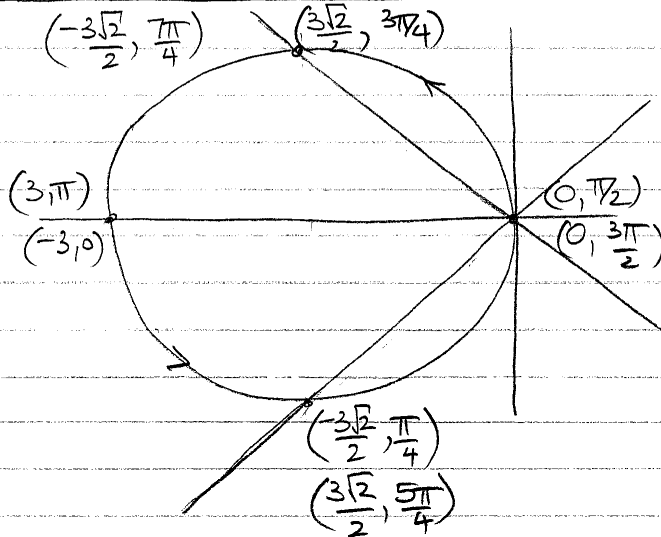 (-3√2/2, 7π/4) (3√2/2, 3π/4)
(3, π)
(-3, 0)
(0, π/2)
(0, 3π/2)
(-3√2/2, π/4)
(3√2/2, 5π/4)